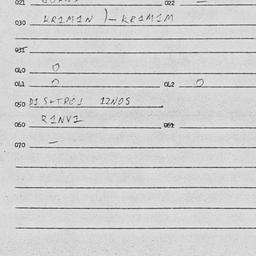 021 022 —
030 KRIMIN )-KRIMIM
035
040 O
041 O 042 O
050 DISTROJ IZNOS
060 RINVI 061
070 —